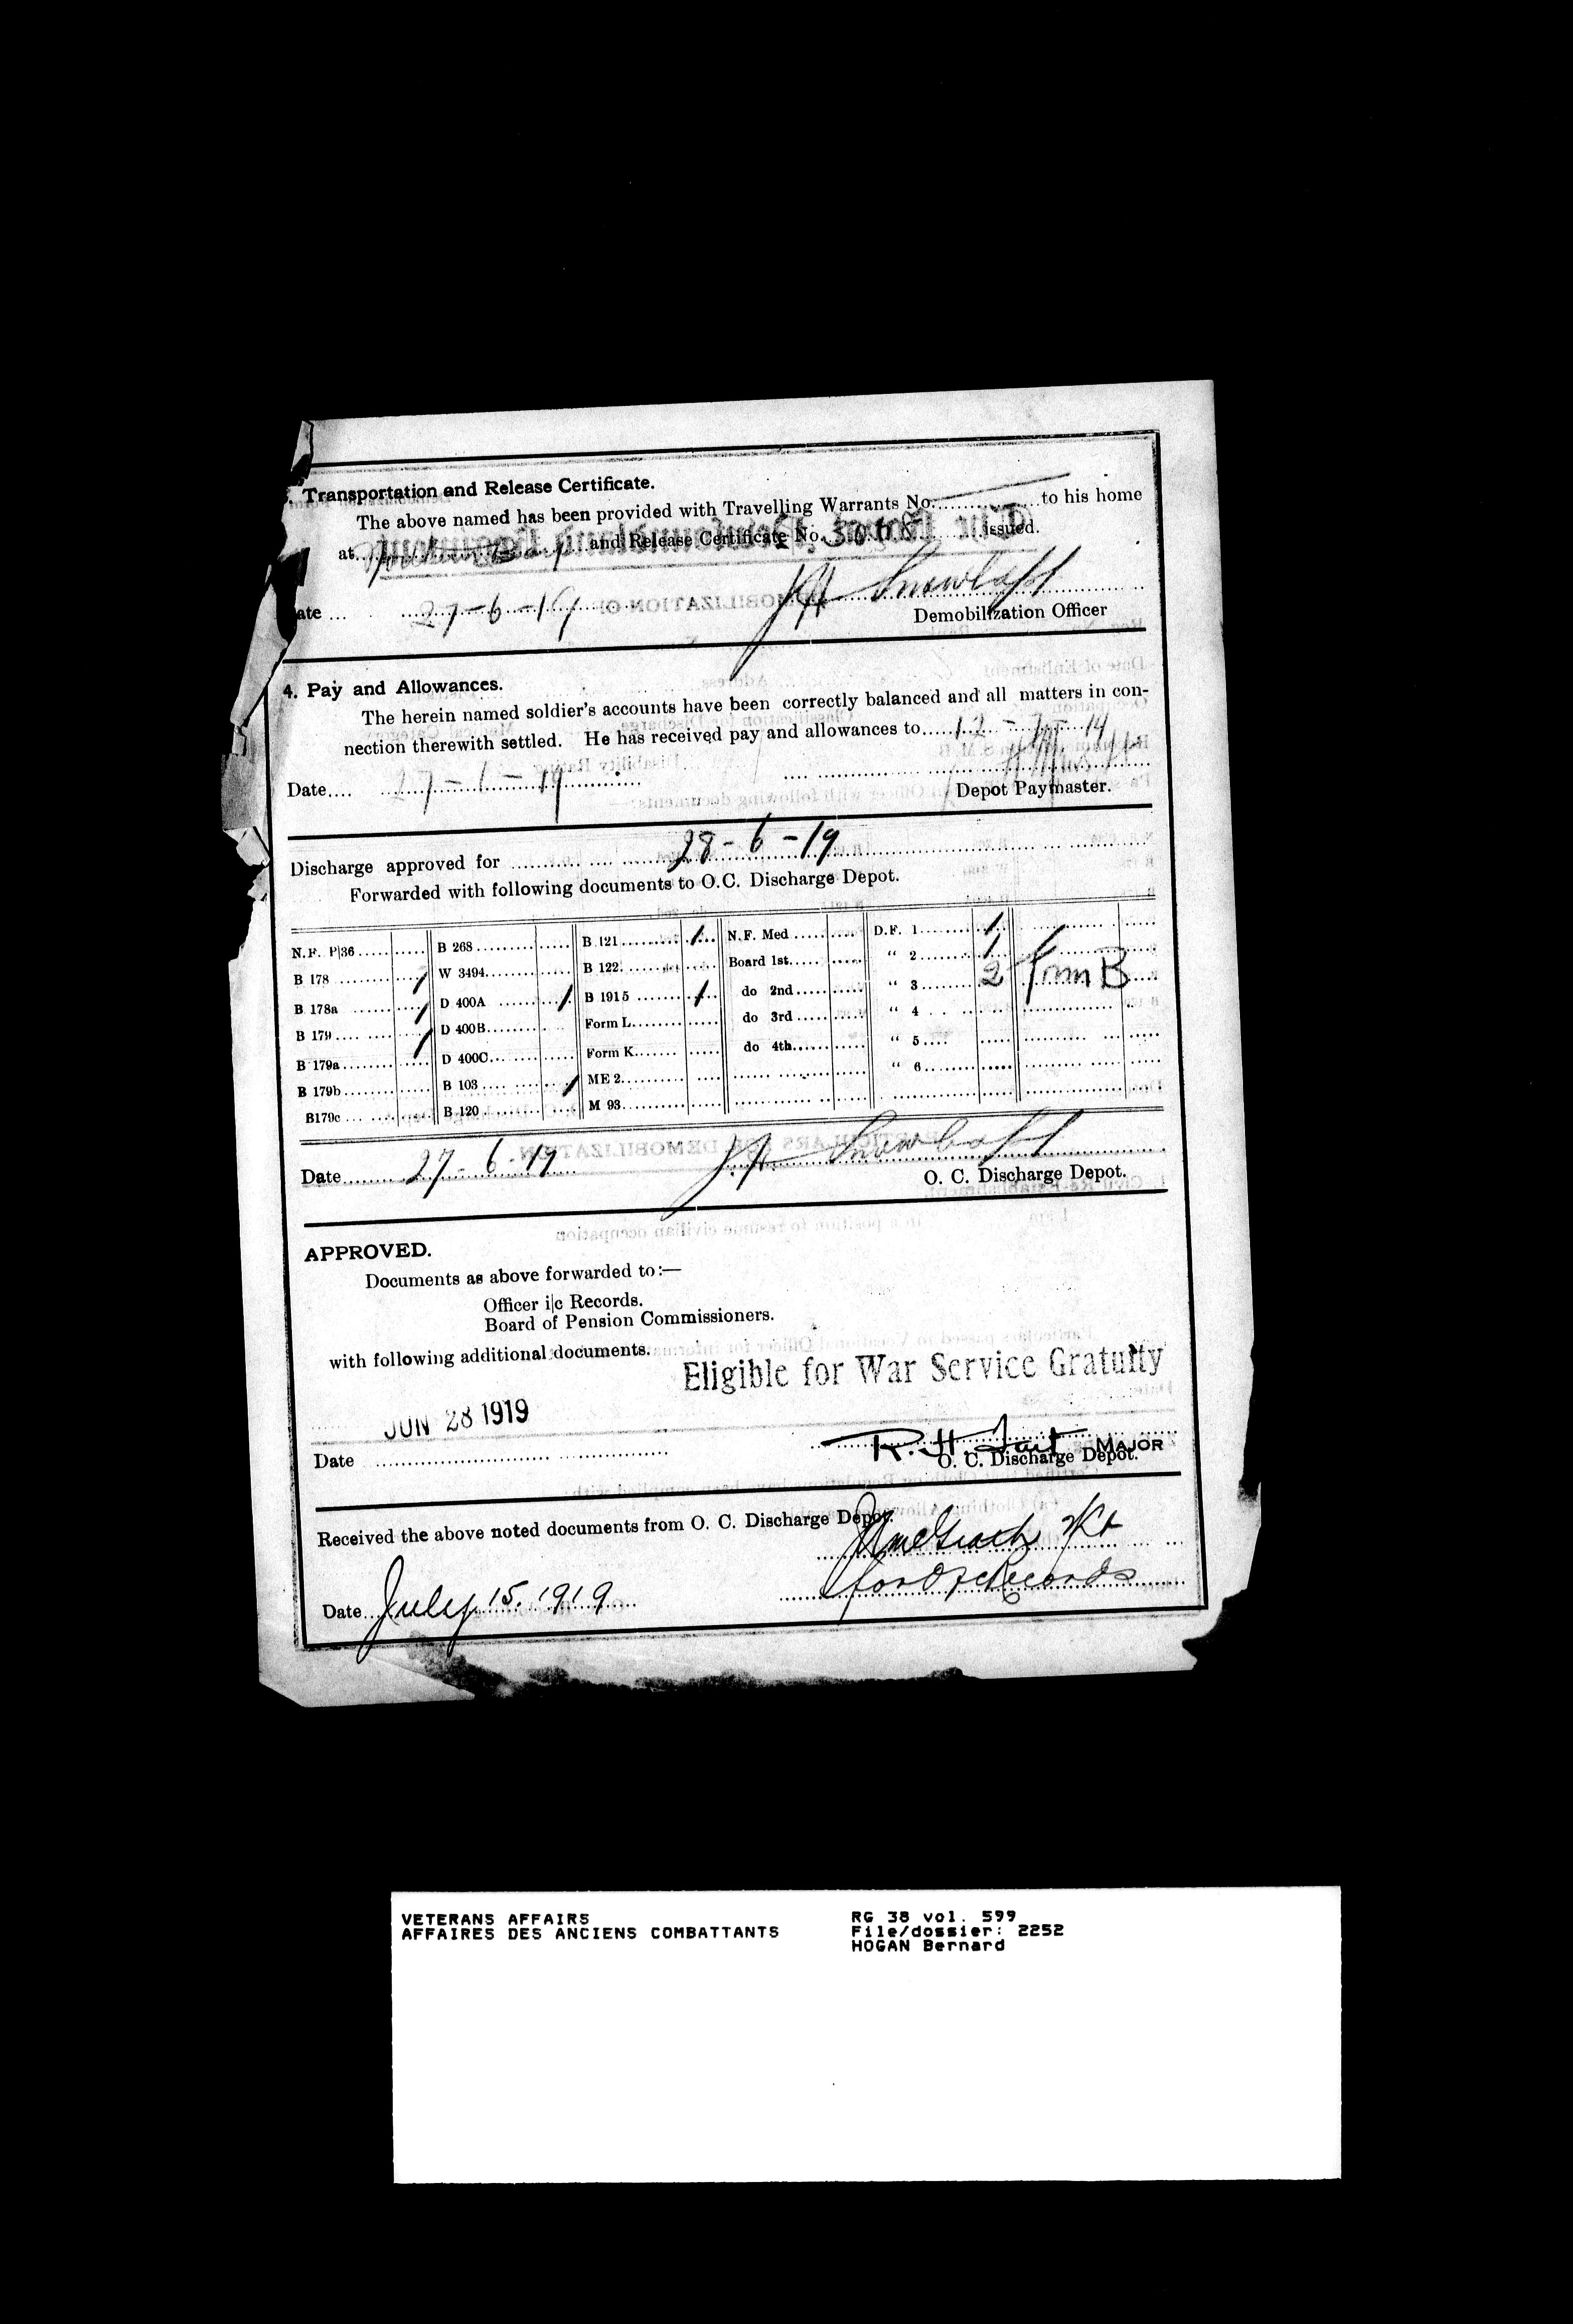 . Transportation and Release Certificate.
The above named has been provided with Travelling Warrants No. to his home
at and Release Certificate No. 3068 issued.
ate 27-6-19
Demobilization Officer
4. Pay and Allowances.
The herein named soldier's accounts have been correctly balanced and all matters in con-
nection therewith settled. He has received pay and allowances to 12-7-19
Date 27-6-19
Depot Paymaster.
Discharge approved for 28-6-19
Forwarded with following documents to O.C. Discharge Depot.
N.F. P|36 B 268 B 121 1 N.F. Med D.F. 1 1
B 178 1 W 3494 B 122 Board 1st " 2 1
B 178a 1 D 400A 1 B 1915 1 do 2nd " 3 2 Form B
B 179 1 D 400B Form L do 3rd " 4
B 179a D 400C Form K do 4th " 5
B 179b B 103 1 ME 2 " 6
B179c B 120 M 93
Date 27-6-19
O. C. Discharge Depot.
APPROVED.
Documents as above forwarded to:—
Officer i|c Records.
Board of Pension Commissioners.
with following additional documents.
Eligible for War Service Gratuity
JUN 28 1919
R. H. Tait MAJOR
Date O. C. Discharge Depot.
Received the above noted documents from O. C. Discharge Depot.
for Records
Date July 15. 1919
VETERANS AFFAIRS
AFFAIRES DES ANCIENS COMBATTANTS
RG 38 vol. 599
File/dossier: 2252
HOGAN Bernard